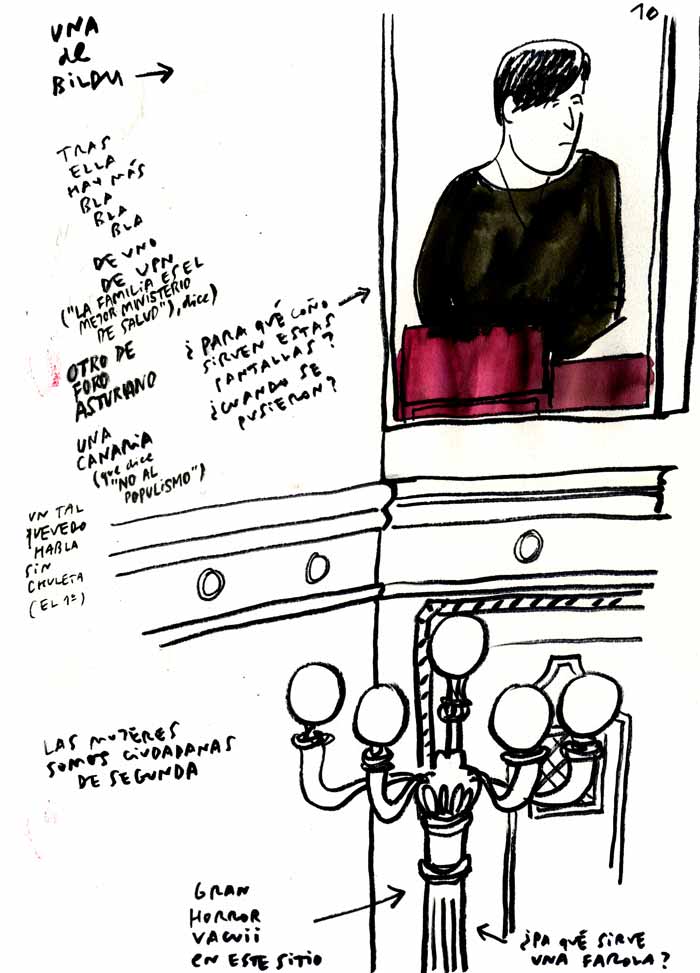 10
UNA
de
BILDU
TRAS
ELLA
HAY MÁS
BLA
BLA
BLA
DE UNO
DE UPN
("LA FAMILIA ES EL
MEJOR MINISTERIO
DE SALUD"), dice)
OTRO DE
FORO
ASTURIANO
UNA
CANARIA
(que dice
"NO AL
POPULISMO")
UN TAL
QUEVEDO
HABLA
SIN
CHULETA
(EL 1º)
¿PARA QUÉ COÑO
SIRVEN ESTAS
PANTALLAS?
¿CUANDO SE
PUSIERON?
LAS MUJERES
SOMOS CIUDADANAS
DE SEGUNDA
GRAN
HORROR
VACUII
EN ESTE SITIO
¿PA QUÉ SIRVE
UNA FAROLA?